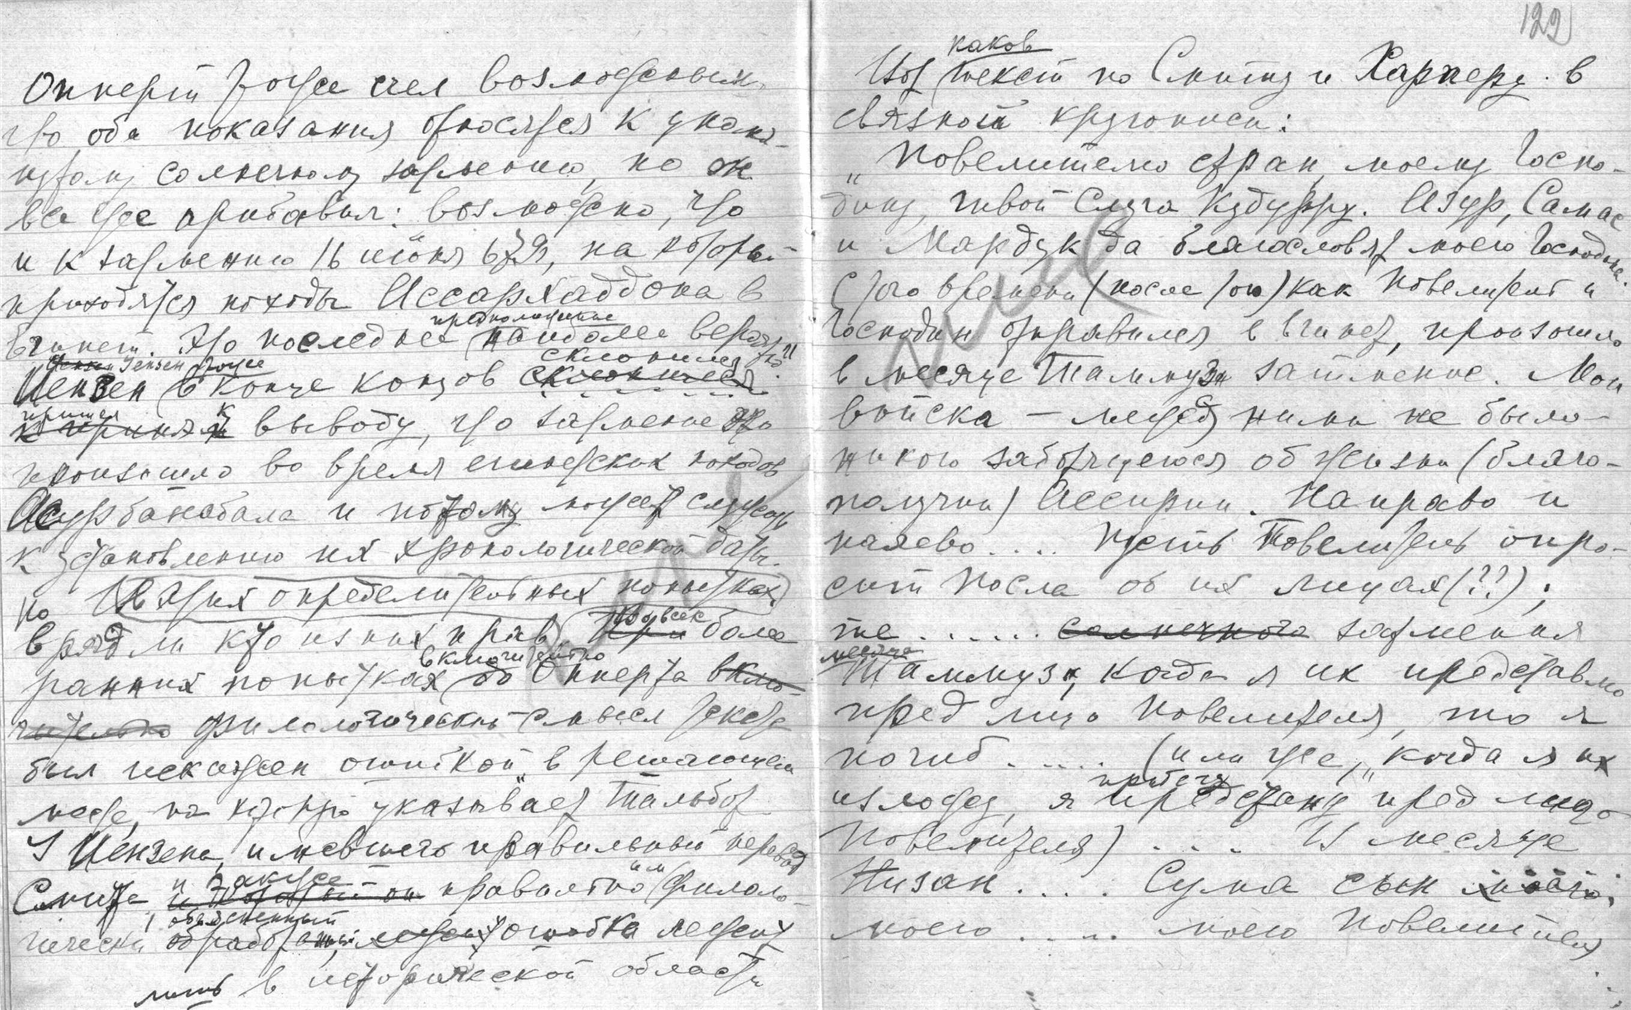 Опперт тоже счел возможным,
что оба показания относятся к упомя-
нутому солнечному затмению, но он
все же прибавил: "возможно, что
и к затмению 16 июня 679, на который
приходятся походы Ассархаддона в
Египет. Это последнее предположение наиболее вероятно."
Иензен тоже в конце концов склонился
пришел к выводу, что затмение это
произошло во время египетских походов
Асурбанабала и потому может служить
к установлению их хронологической даты.
Но в этих определительных попытках
вряд ли кто из них прав. При всех более
ранних попытках до Опперта включительно
филологический смысл текста
был искажен ошибкой в решающем
месте, на которую указывает Тальбот
У Иензена, имевшего правильный перевод
Смита, и также правильно им филоло-
гически объясненный обработанный, ошибка лежит
лишь в исторической области
122
каков
Вот текст по Смиту и Харперу в
связной
"Повелителю стран, моему Госпо-
дину, твой слуга Кудурру. Азур, Самас
и Мардук да благословят моего Господина.
С того времени (после того) как Повелитель и
Господин отправился в Египет, произошло
в месяце Таммузи затмение. Мои
войска — между ними не было
никого заботящегося об жизни (благо-
получии) Ассирии. Направо и
налево.... Пусть Повелитель спро-
сит посла об их лицах (??);
те ...... солнечного затмения
месяца
Таммузи, когда я их представлю
пред лицо Повелителя, то я
погиб ..... (или же, "когда я их
изложу, я предстану пред лицо
Повелителя) .... В месяце
Низан .... Сума сын моего
моего ..... моего Повелителя